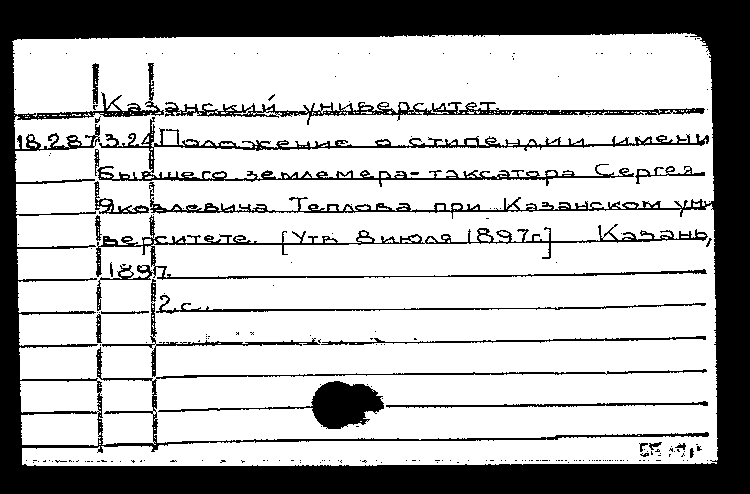 Казанский университет
18.287.3.24 Положение о стипендии имени
бывшего землемера-таксатора Сергея
Яковлевича Теплова при Казанском уни
верситете. [Утв. 8 июля 1897г.] Казань,
1897.
2 с.